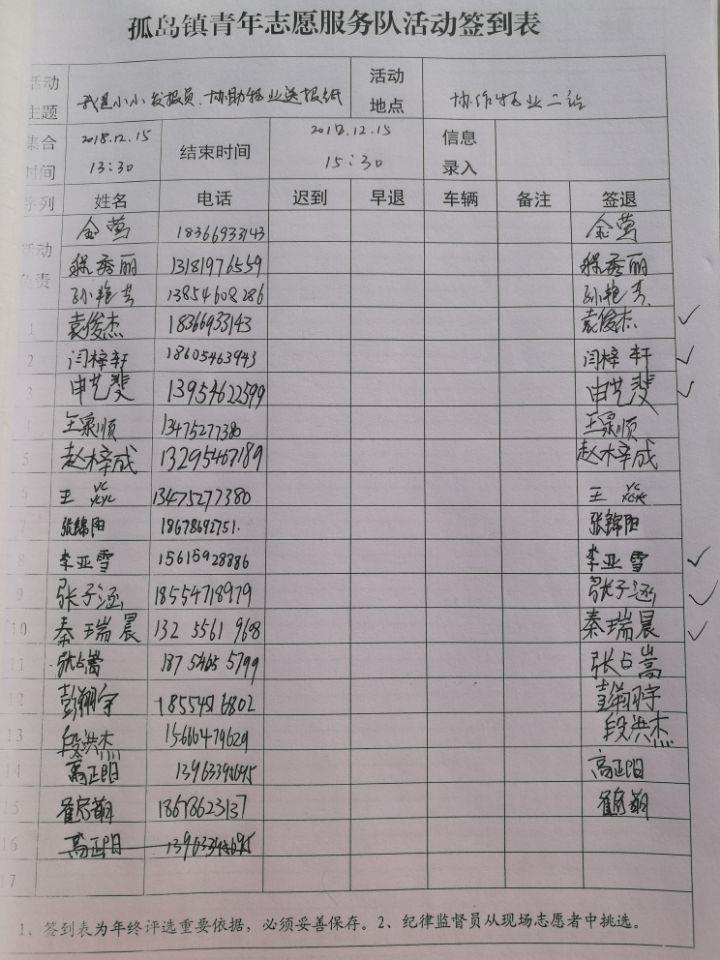 孤岛镇青年志愿服务队活动签到表
活动主题 我是小小发报员、协助物业送报纸 活动地点 协作物业二站
集合时间 2018.12.15 13:30 结束时间 2018.12.15 15:30 信息录入
序列 姓名 电话 迟到 早退 车辆 备注 签退
活动负责 金莺 18366933143 金莺
程秀丽 13181976559 程秀丽
孙艳芳 13854608286 孙艳芳
1 袁俊杰 18366933143 袁俊杰
2 闫梓轩 18605463943 闫梓轩
3 申艺斐 13954622599 申艺斐
4 王泉顺 13475277380 王泉顺
5 赵梓成 13295467189 赵梓成
6 王 13475277380 王
7 张锦阳 18678692751. 张锦阳
8 李亚雪 15615928886 李亚雪
9 张子涵 18554718979 张子涵
10 秦瑞晨 132 5561 9688 秦瑞晨
11 张占嵩 187 5465 5799 张占嵩
12 彭翔宇 彭翔宇
13 段洪杰 段洪杰
14 高正阳 高正阳
15 18678623137
16 高正阳
17
1、签到表为年终评选重要依据，必须妥善保存。2、纪律监督员从现场志愿者中挑选。